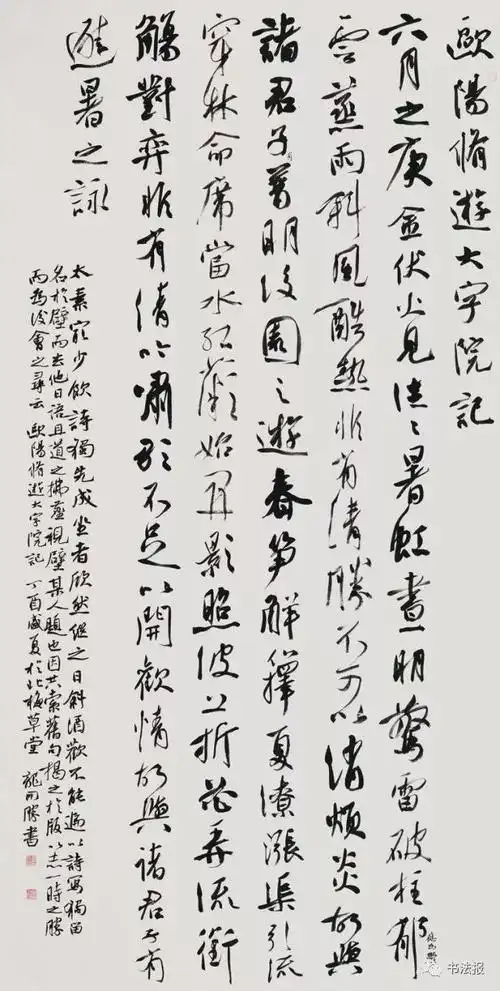 歐陽脩遊大字院記
六月之庚金伏火見往〻暑虹晝明驚雷破柱郁
雲蒸雨斜風酷熱非有清勝不可以消煩炎故與
諸君子普明後園之遊春筍解籜夏潦漲渠引流
穿林命席當水紅薇始開影照波上折花弄流銜
觴對弈非有清吟嘯歌不足以開歡情故與諸君子有
避暑之詠
太素最少飲詩獨先成坐者欣然繼之日斜酒歡不能遍以詩寫獨留
名於壁而去他日語且道之拂塵視壁某人題也因共索舊句揭之於版以志一時之勝
而為後會之尋云 歐陽脩遊大字院記 丁酉盛夏於北梅草堂 龍開勝書
书法报